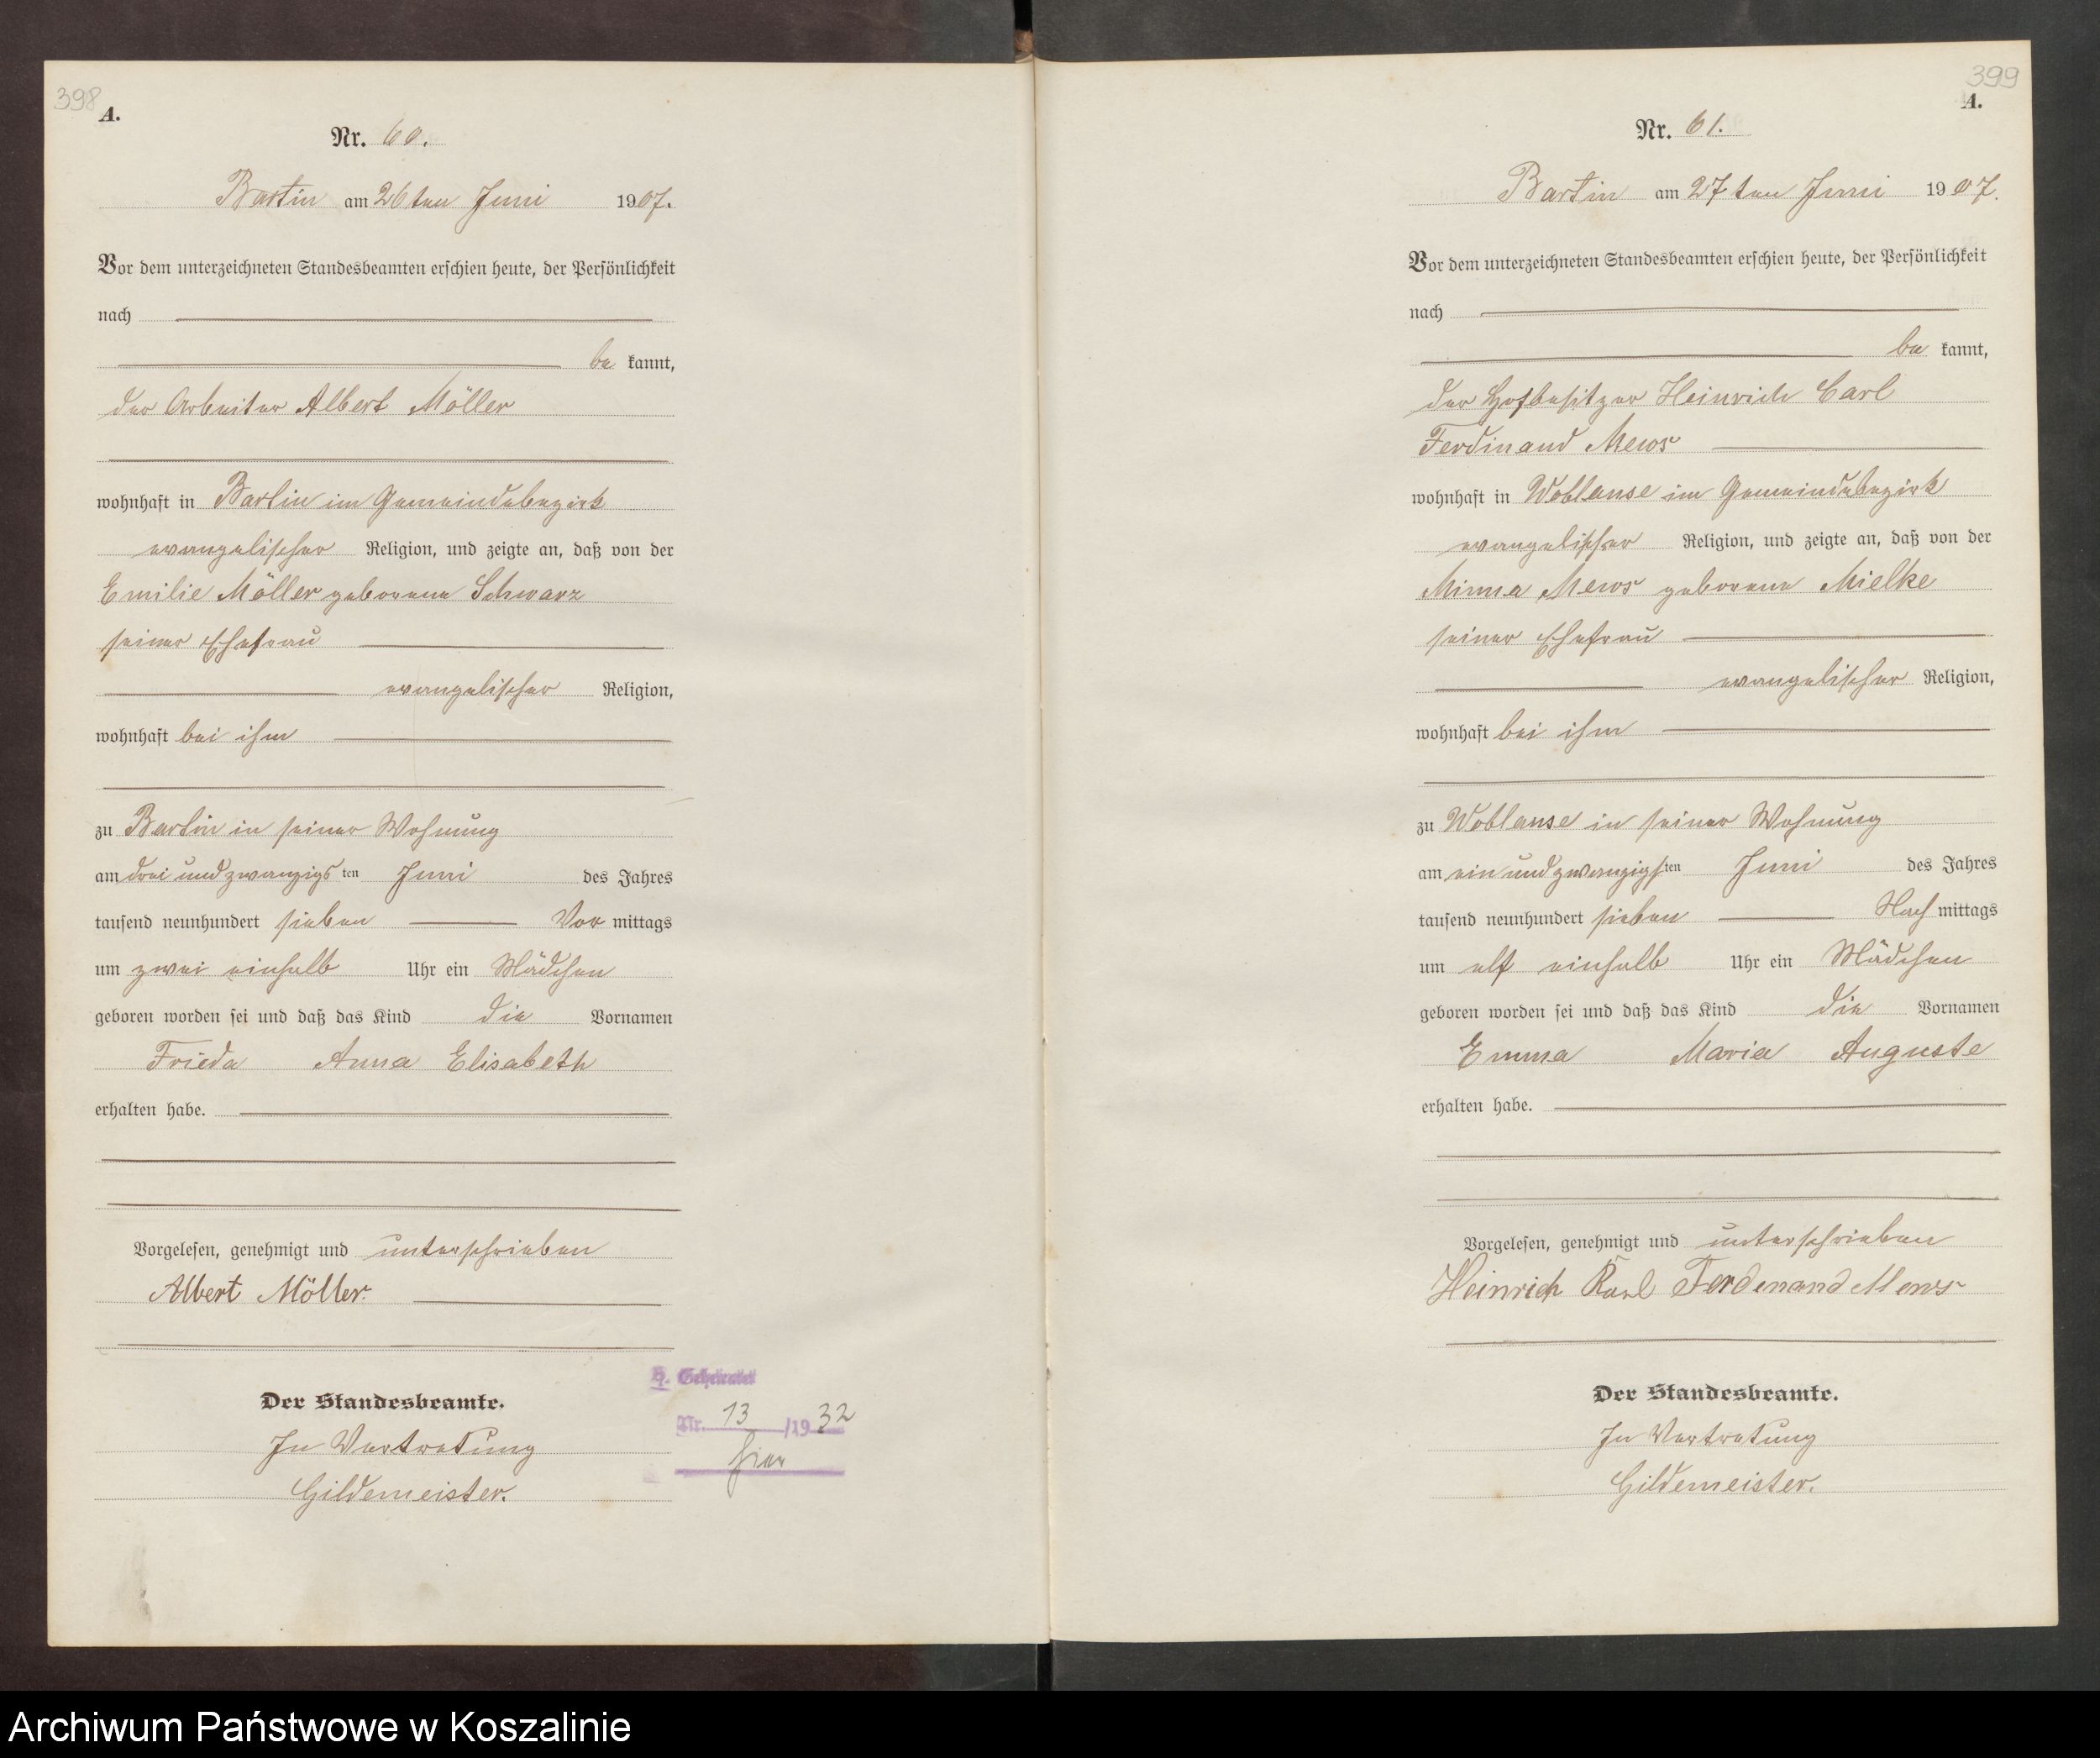 398
A.
Nr. 60.
Bartin am 26ten Juni 1907.
Vor dem unterzeichneten Standesbeamten erschien heute, der Persönlichkeit
nach
be kannt,
der Arbeiter Albert Möller
wohnhaft in Bartin im Gemeindebezirk
evangelischer Religion, und zeigte an, daß von der
Emilie Möller geborene Schwarz
seiner Ehefrau
evangelischer Religion,
wohnhaft bei ihm
zu Bartin in seiner Wohnung
am drei und zwanzigsten Juni des Jahres
tausend neunhundert sieben Vor mittags
um zwei einhalb Uhr ein Mädchen
geboren worden sei und daß das Kind die Vornamen
Frieda Anna Elisabeth
erhalten habe.
Vorgelesen, genehmigt und unterschrieben
Albert Möller.
Der Standesbeamte.
In Vertretung
Gildemeister.
Nr. 13 /1932
hier
399
A.
Nr. 61.
Bartin am 27ten Juni 1907.
Vor dem unterzeichneten Standesbeamten erschien heute, der Persönlichkeit
nach
be kannt,
der Hofbesitzer Heinrich Carl
Ferdinand Mews
wohnhaft in Woblanse im Gemeindebezirk
evangelischer Religion, und zeigte an, daß von der
Minna Mews geborene Mielke
seiner Ehefrau
evangelischer Religion,
wohnhaft bei ihm
zu Woblanse in seiner Wohnung
am ein und zwanzigsten Juni des Jahres
tausend neunhundert sieben Nach mittags
um elf einhalb Uhr ein Mädchen
geboren worden sei und daß das Kind die Vornamen
Emma Maria Auguste
erhalten habe.
Vorgelesen, genehmigt und unterschrieben
Heinrich Karl Ferdenand Mews
Der Standesbeamte.
In Vertretung
Gildemeister.
Archiwum Państwowe w Koszalinie